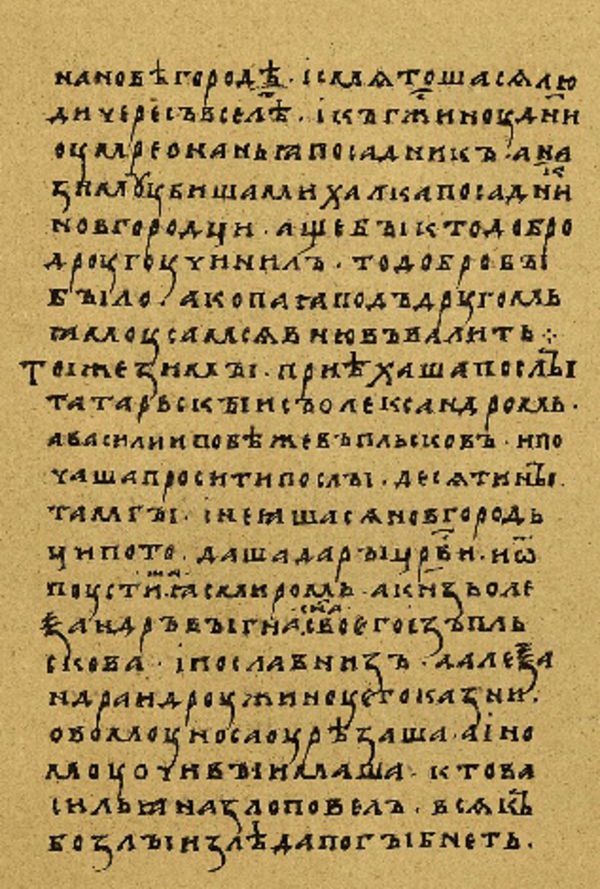 НАНОВѢГОРОДѢ · ІСМѦТОШАСѦЛЮ
ДИЧЕРЕСЪВСЕЛѢ · ІКЪГЖ҃ИНОУДНИ
ОУМРЕОНАНЬꙖПОСАДНИКЪ · АНА
ЗИМОУѸБИШАМИХАЛКАПОСАДНИ
НОВГОРОДЦИ · АЩЕБЫКТОДОБРО
ДРОУГОУЧИНИЛЪ · ТОДОБРОБЫ
БЫЛО · АКОПАꙖПОДЪДРОУГОМЬ
ꙖМОУСАМСѦВНЮВЪВАЛИТЬ ⁘
ТОІЖЕЗИМЫ · ПРИѢХАШАПОСЛЫ
ТАТАРЬСКЫИСЪОЛЕКСАНДРОМЬ ·
АВАСИЛИИПОБѢЖЕВЪПЛЬСКОВЪ · ИПО
ЧАШАПРОСИТИПОСЛЫ · ДЕСѦТИНЫ
ТАМГЫ · ІНЕꙖШАСѦНОВГОРОДЬ
ЦИПОТО · ДАШАДАРЫЦР҃ВИ · ИѾ
ПОУСТИШАꙖСМИРОМЬ · АКНЗЬОЛЕ
ѮАНДРЪВЫГНАСН҃АСВОЕГОІЗЪПЛЬ
СКОВА · ІПОСЛАВНИЗЪ · ААЛЕѮА
НДРАИДРОУЖИНОУЕГОКАЗНИ ·
ОВОМОУНОСАОУРѢЗАША · АІНО
МОУОЧИВЫИМАША · КТОВА
СИЛЬꙖНАЗЛОПОВЕЛЪ · ВСѦКЪ
БОЗЛЫИЗЛѢДАПОГЫБНЕТЬ ·